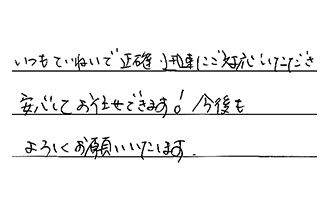 いつもていねいで正確、迅速にご対応いただき
安心してお任せできます！今後も
よろしくお願いいたします.